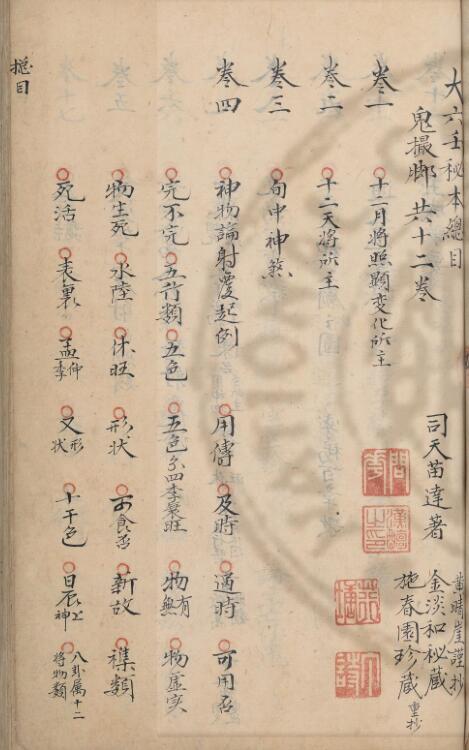 大六壬秘本總目
鬼撮脚 共十二卷 司天苗達著
黄晴崖謹抄
金淡和秘藏
施春園珍藏 重抄
卷一 十二月將照顯变化所主
卷二 十二天將所主
卷三 句中神煞
卷四 神物論射覆起例 用傳 及時 過時 可用否
完不完 五行類 五色 五色分四季衰旺 物有無 物虛实
物生死 水陸 休旺 形状 可食否 新故 襍類
死活 表裏 孟仲季 又形状 十干色 日辰上神 八卦属十二將物類
總目